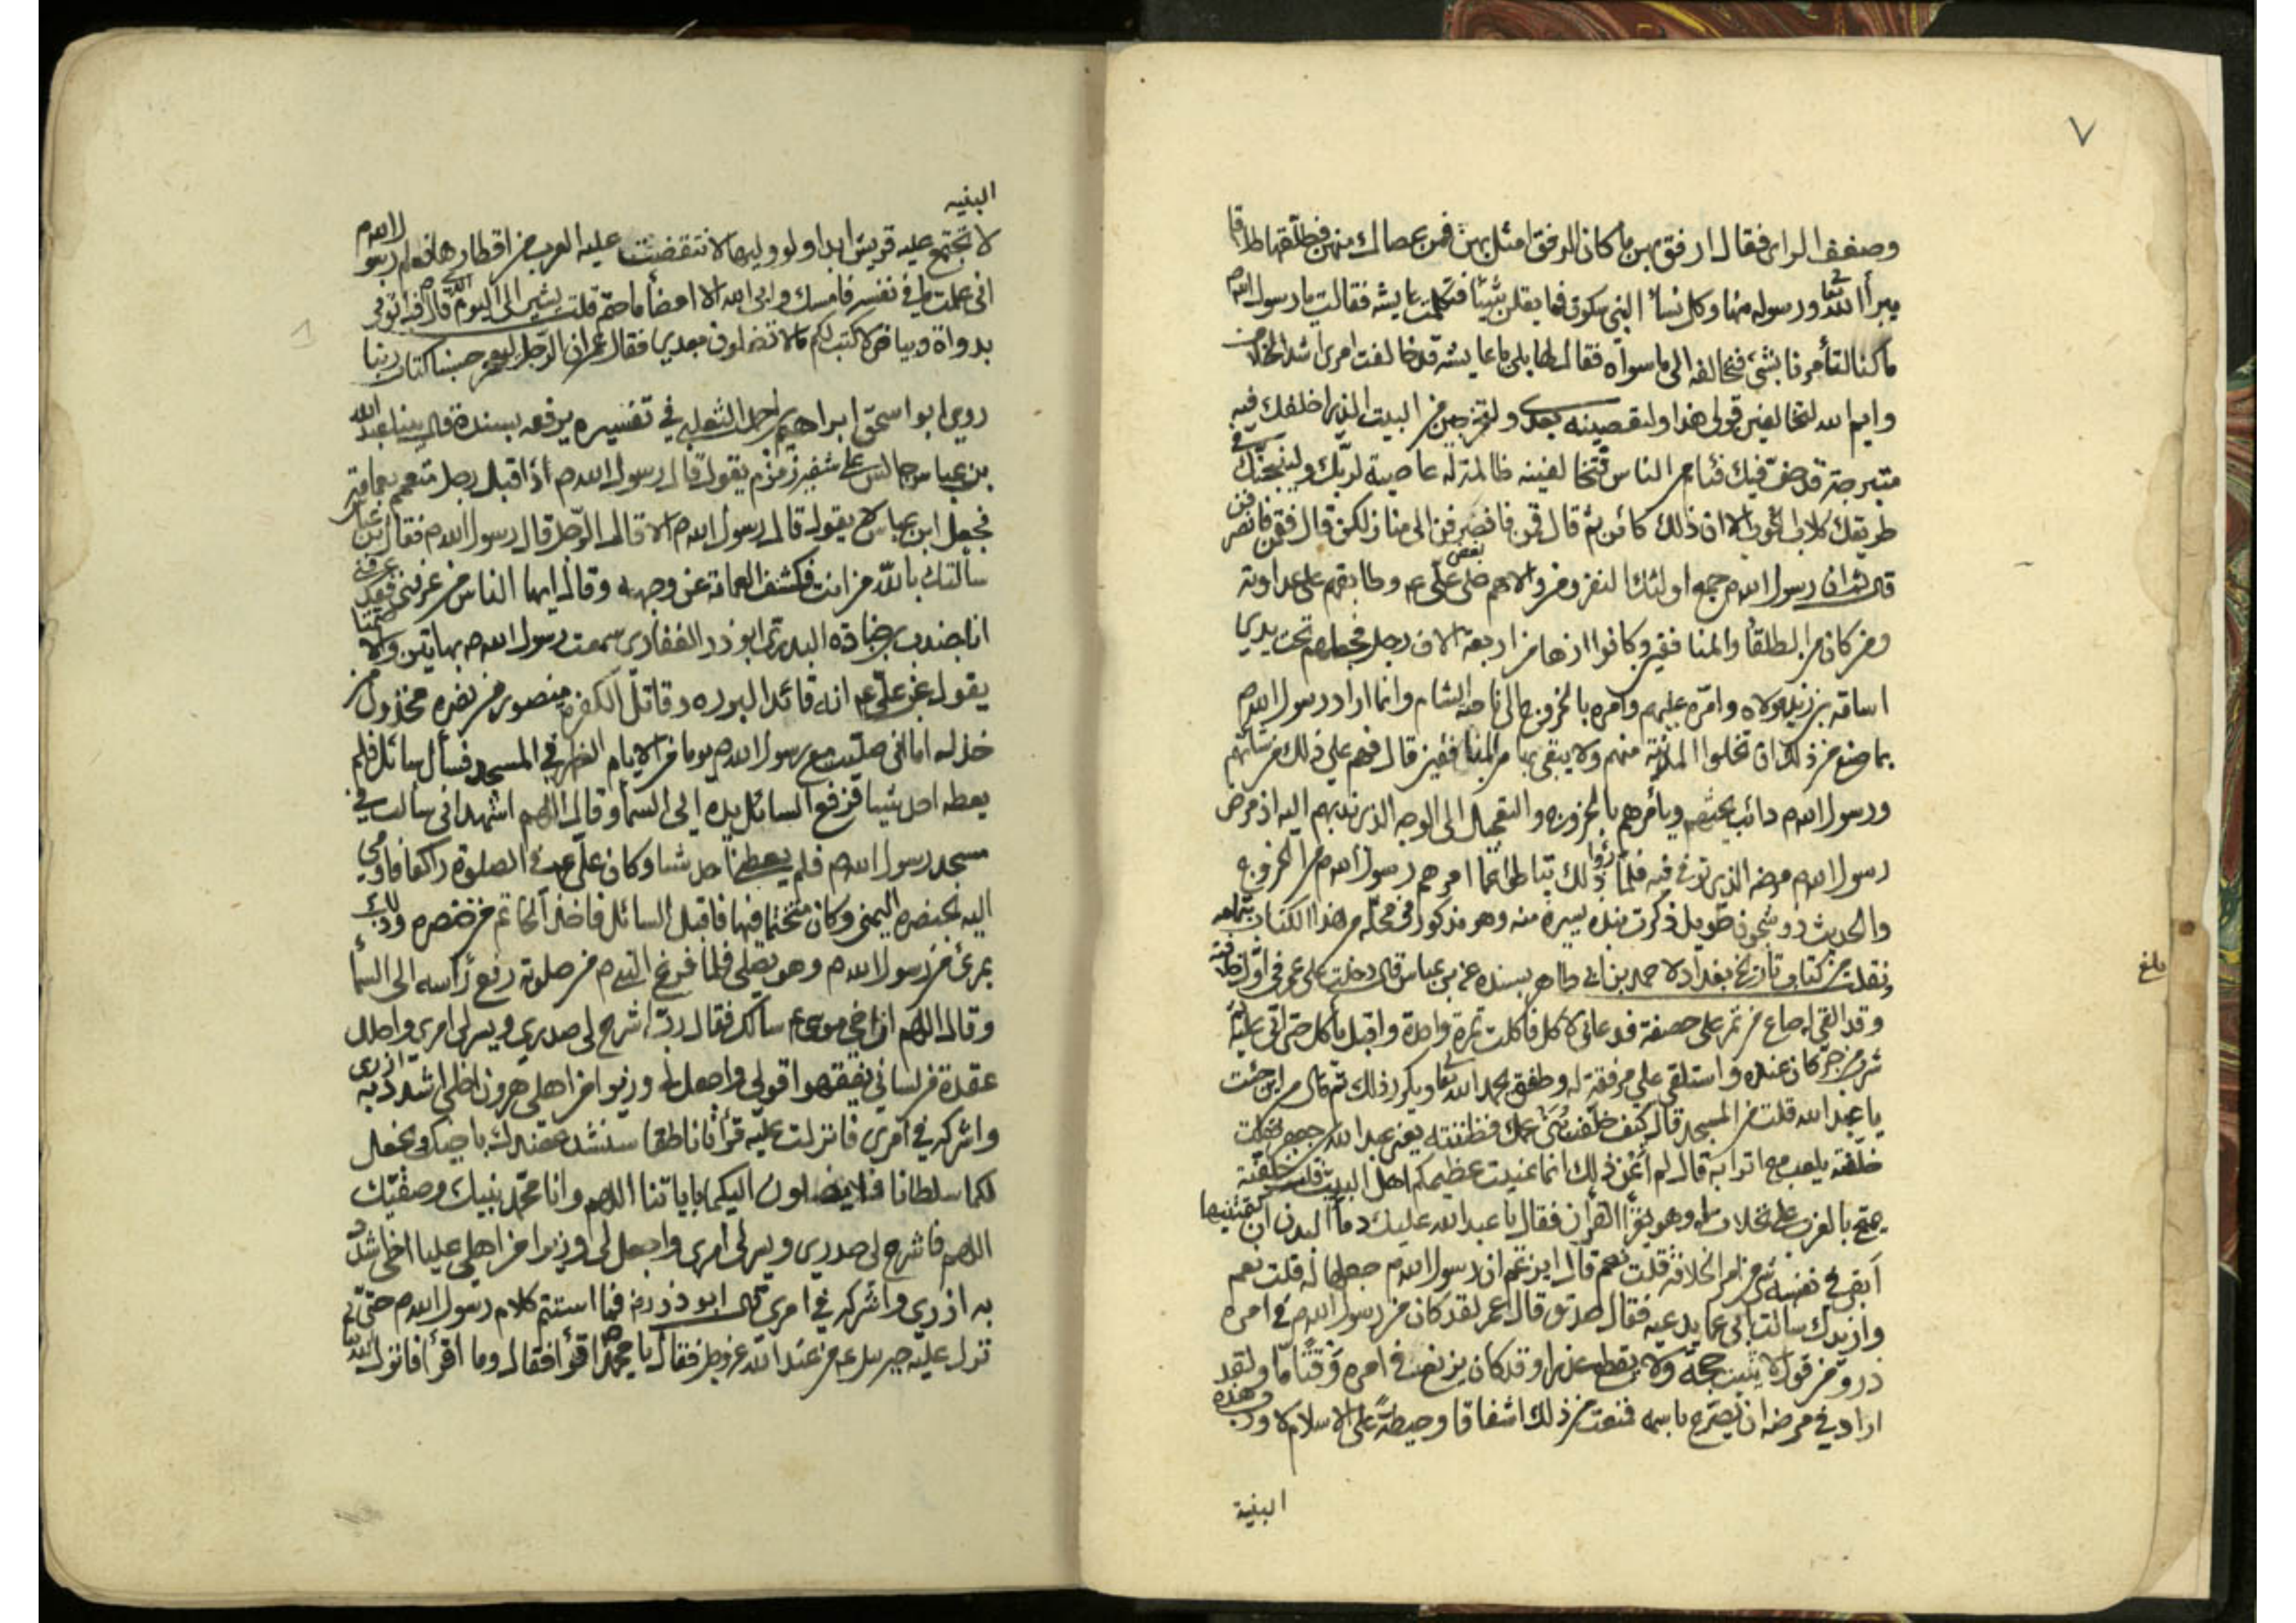 ٧
وضعف الراى فقال ارفق بهن ما كان الرفق امثل بهن فمن عصاك منهن فطلقها طلاقا
يبرأ الله تعالى ورسوله منها وكل نسأ النبى سكوت فما يقلن شيئا فتكلمت عايشه فقالت يا رسول الله ص
ما كنا لتأمرنا بشئ فنخالفه الى ما سواه فقال لها بلى يا عايشه قد خالفت امرى اشد الخلاف
وايم الله لتخالفين قولى هذا ولتعصينه بعدى ولتخرجن من البيت الذى اخلفك فيه
متبرجة قد حف فيك فئام من الناس فتخالفينه ظالمة له عاصية لربك ولينبحنك فى
طريقك كلاب الحوب الا ان ذلك كائن ثم قال قمن فانصرفن الى منازلكن قال فقمن فانصرفن
قال ثم ان رسول الله ص جمع اولئك النفر ومن والاهم على على ع وطابقهم على عداوته
ومن كان من الطلقأ والمنافقين وكانوا زها من اربعة الاف رجل فجعلهم تحت يدى
اسامة بن زيد مولاه وامره عليهم وامره بالخروج الى ناحية الشام وانما اراد رسول الله ص
بما صنع من ذلك ان تخلوا المدينة منهم ولا يبقى بها من المنافقين قال فهم على ذلك من شأنهم
ورسول الله ص دائب يحثهم ويأمرهم بالخروج والتعجيل الى الوجه الذى ندبهم اليه اذ مرض
رسول الله ص مرضه الذى توفى فيه فلما رأوا ذلك تباطؤا عما امرهم رسول الله ص من الخروج
والحديث ذو شجون طويل ذكرت نبذه يسيرة منه وهو مذكور فى محله من هذا الكتاب بتمامه
ونقلت من كتاب تاريخ بغداد لاحمد بن ابى طاهر بسنده عن ابن عباس قال دخلت على عمر فى اول خلافته
وقد القى له صاع من تمر على خصفة فدعانى لاكل فاكلت تمرة واحدة واقبل يأكل حتى اتى عليه ثم
شرب من جر كان عنده واستلقى على مرفقة له وطفق يحمد الله تعالى ويكرر ذلك ثم قال من اين جئت
يا عبد الله قلت من المسجد قال كيف خلفت بنى عمك فظننته يعنى عبد الله بن جعفر فقلت
خلفته يلعب مع اترابه قال لم اعن ذلك انما عنيت عظيمكم اهل البيت قلت خلفته
يمتح بالغرب على نخلات له وهو يقرأ القرآن فقال يا عبد الله عليك دمأ البدن ان كتمتنيها
أبقى فى نفسه شئ من امر الخلافة قلت نعم قال ايزعم ان رسول الله ص جعلها له قلت نعم
وازيدك سالت ابى عما يدعيه فقال صدق قال عمر لقد كان من رسول الله ص فى امره
ذرو من قول لا يثبت حجة ولا يقطع عذرا وقد كان يزيغ فى امره وقتا ما ولقد
اراد فى مرضه ان يصرح باسمه فمنعت من ذلك اشفاقا وحيطة على الاسلام لا ورب هذه
البنية
بلغ
البنيه
لا تجتمع عليه قريش ابدا ولو وليها لانتقضت عليه العرب من اقطارها فعلم رسول الله ص
انى علمت ما فى نفسه فامسك وابى الله الا امضأ ما حتم قلت يشير الى اليوم الذى قال فيه اتونى
بدواة وبياض لاكتب لكم ما لا تضلون بعدى فقال عمر ان الرجل ليهجر حسبنا كتاب ربنا
روى ابو اسحق ابراهيم بن احمد الثعلبى فى تفسيره يرفعه بسنده قال بينا عبد الله
بن عباس جالس على شفير زمزم يقول قال رسول الله ص اذ اقبل رجل متعمم بعمامة
فجعل ابن عباس لا يقول قال رسول الله ص الا قال الرجل قال رسول الله ص فقال ابن عباس
سالتك بالله من انت فكشف العمامة عن وجهه وقال ايها الناس من عرفنى فقد عرفنى
انا جندب بن جنادة البدرى ابو ذر الغفارى سمعت رسول الله ص بهاتين والا صمتا
يقول عن على ع انه قائد البرره وقاتل الكفرة منصور من نصره مخذول من
خذله اما انى صليت مع رسول الله ص يوما من الايام الظهر فى المسجد فسأل سائل فلم
يعطه احد شيئا فرفع السائل يده الى السمأ وقال اللهم اشهد انى سالت فى
مسجد رسول الله ص فلم يعطنى احد شيئا وكان على ع فى الصلوة راكعا فاومى
اليه بخنصره اليمنى وكان متختما فيها فاقبل السائل فاخذ الخاتم من خنصره وذلك
بمرئ من رسول الله ص وهو يصلى فلما فرغ النبى ص من صلوته رفع رأسه الى السمأ
وقال اللهم ان اخى موسى ع سالك فقال رب اشرح لى صدرى ويسر لى امرى واحلل
عقدة من لسانى يفقهوا قولى واجعل لى وزيرا من اهلى هرون اخى اشدد به ازرى
واشركه فى امرى فانزلت عليه قرأنا ناطقا سنشد عضدك باخيك ونجعل
لكما سلطانا فلا يصلون اليكما باياتنا اللهم وانا محمد نبيك وصفيك
اللهم فاشرح لى صدرى ويسر لى امرى واجعل لى وزيرا من اهلى عليا اخى اشدد
به ازرى واشركه فى امرى قال ابو ذر رض فما استتم كلام رسول الله ص حتى
نزل عليه جبرئيل ع من عند الله عز وجل فقال يا محمد اقرأ فقال وما اقرأ فانزل الله